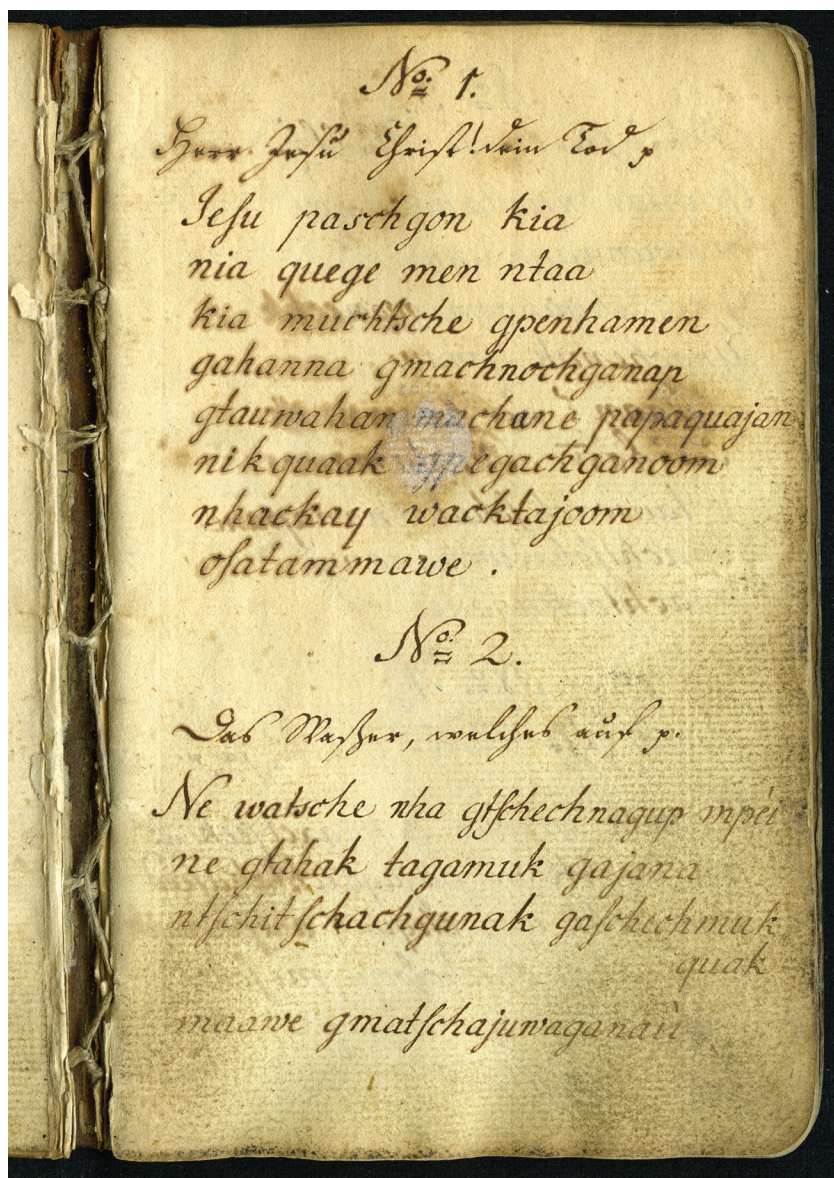 No: 1.
Herr Jesu Christ! dein Tod p
Jeſu paschgon kia
nia quege men ntaa
kia muchtsche gpenhamen
gahanna gmachnochganap
gtauwahan machane papaquajan
nik quaak gpegachganoom
nhackay wacktajoom
oſatammawe .
No: 2.
Das Waßer, welches auf p.
Ne watsche nha gtſchechnagup mpéi
ne gtahak tagamuk gajana
ntſchitſchachgunak gaſchechmuk
quak
maawe gmatſchajuwaganaù